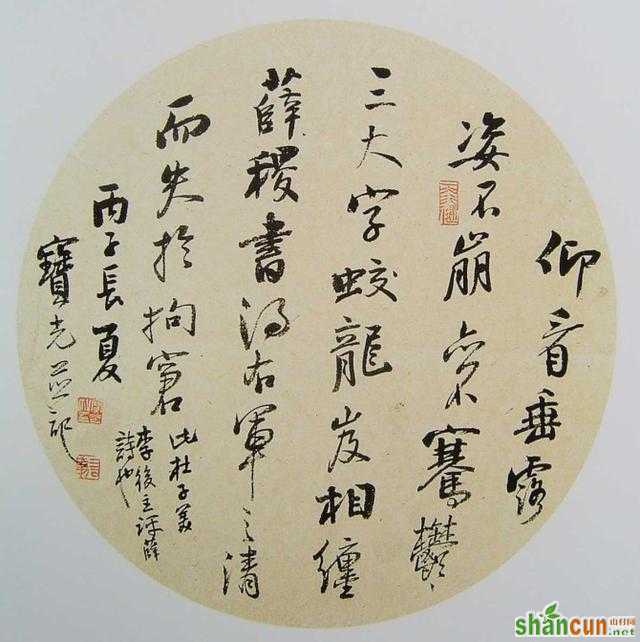 仰看垂露
姿不崩亦不騫鬱鬱
三大字蛟龍岌相纏
薛稷書得右軍之清
而失於拘窘
此杜子美
李後主評薛
詩也
丙子長夏
寶光 記
shancun
山村网
.net